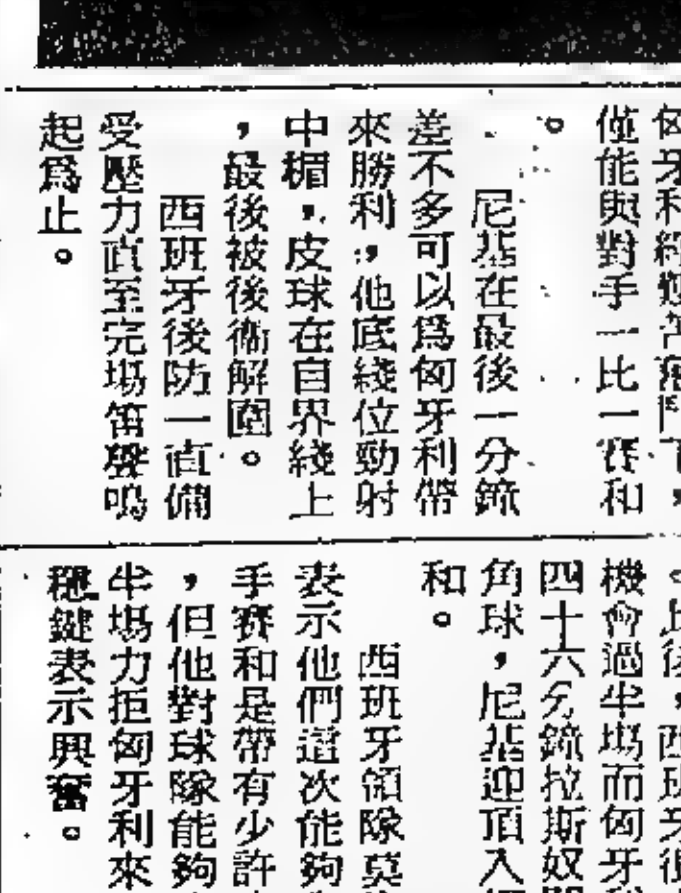 匈牙利經艱苦奮鬥下，
僅能與對手一比一賽和
。
尼基在最後一分鐘
差不多可以爲匈牙利帶
來勝利，他底綫位勁射
中楣，皮球在自界綫上
，最後被後衞解圍。
西班牙後防一直備
受壓力直至完場笛聲鳴
起爲止。
。此後，西班牙很
機會過半場而匈牙
四十六分鐘拉斯奴
角球，尼基迎頂入
和。
西班牙領隊莫
表示他們這次能夠
手賽和是帶有少許
，但他對球隊能夠
半場力拒匈牙利來
穩健表示興奮。